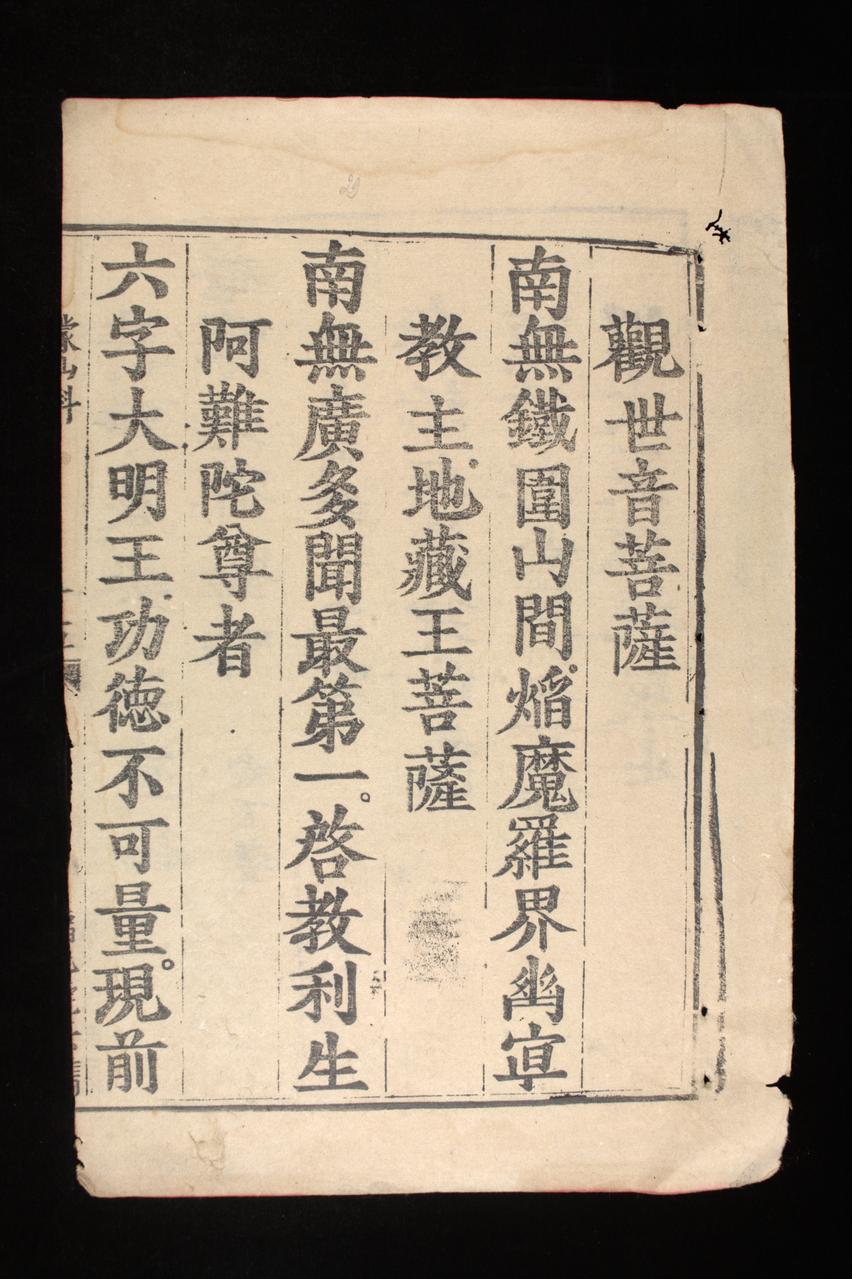 觀世音菩薩
南無鐵圍山間。焔魔羅界幽㝠
教主。地藏王菩薩
南無廣多聞最第一。啓教利生
阿難陀尊者
六字大明王。功德不可量。現前
蒙山科